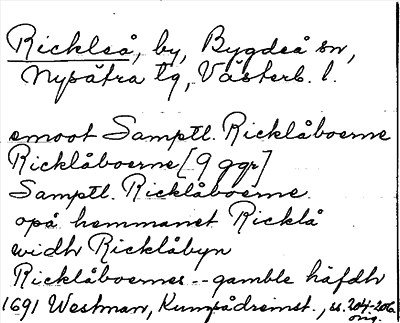 Rickleå, by, Bygdeå sn,
Nysätra tg, Västerb. l.
emoot Samptl. Ricklåboerne
Ricklåboerne [9 ggr]
Samptl. Ricklåboerne
opå hemmanet Ricklå
widh Ricklåbyn
Ricklåboernes -- gamble häfdh
1691 Westman, Kungsådromst., ss. 204-206
orig.